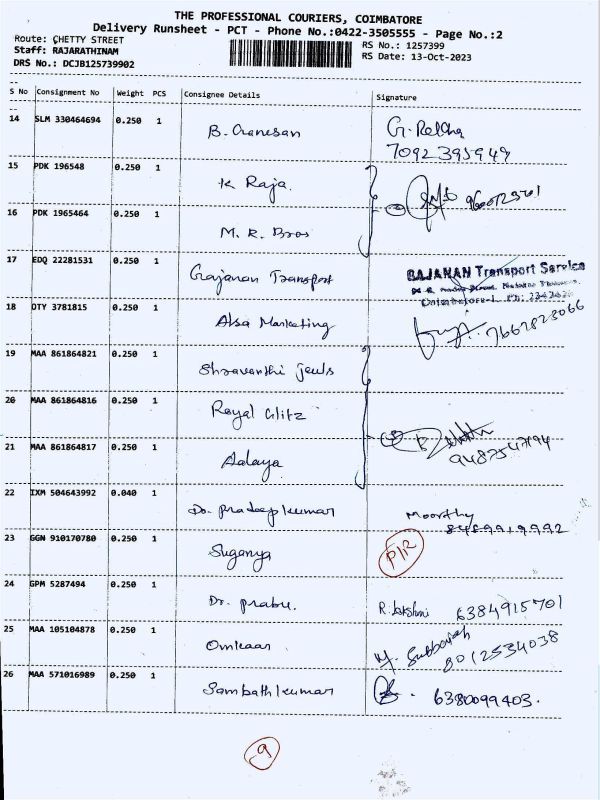 THE PROFESSIONAL COURIERS, COIMBATORE
Delivery Runsheet - PCT - Phone No.:0422-3505555 - Page No.:2
Route: CHETTY STREET
RS No.: 1257399
Staff: RAJARATHINAM
RS Date: 13-Oct-2023
DRS No.: DCJB125739902
S No Consignment No Weight PCS Consignee Details Signature
14 SLM 330464694 0.250 1 B. Ganesan
7092395949
15 PDK 196548 0.250 1 K Raja.
16 PDK 1965464 0.250 1 M. R. Bros
17 EDQ 22281531 0.250 1 Gajanan Transport GAJANAN Transport Service
18 OTY 3781815 0.250 1 Alsa Marketing 7667823066
19 MAA 861864821 0.250 1 Shravanthi Jewls
20 MAA 861864816 0.250 1 Royal Glitz
21 MAA 861864817 0.250 1 Aalaya
22 IXM 504643992 0.040 1 Dr. Pradeep kumar Moorthy
23 GGN 910170780 0.250 1 Suganya P/R
24 GPM 5287494 0.250 1 Dr. prabu. R. lakshmi 6384915701
25 MAA 105104878 0.250 1 Omkaar M. Subbaiah
8012534038
26 MAA 571016989 0.250 1 Sambath kumar 6380099403.
9